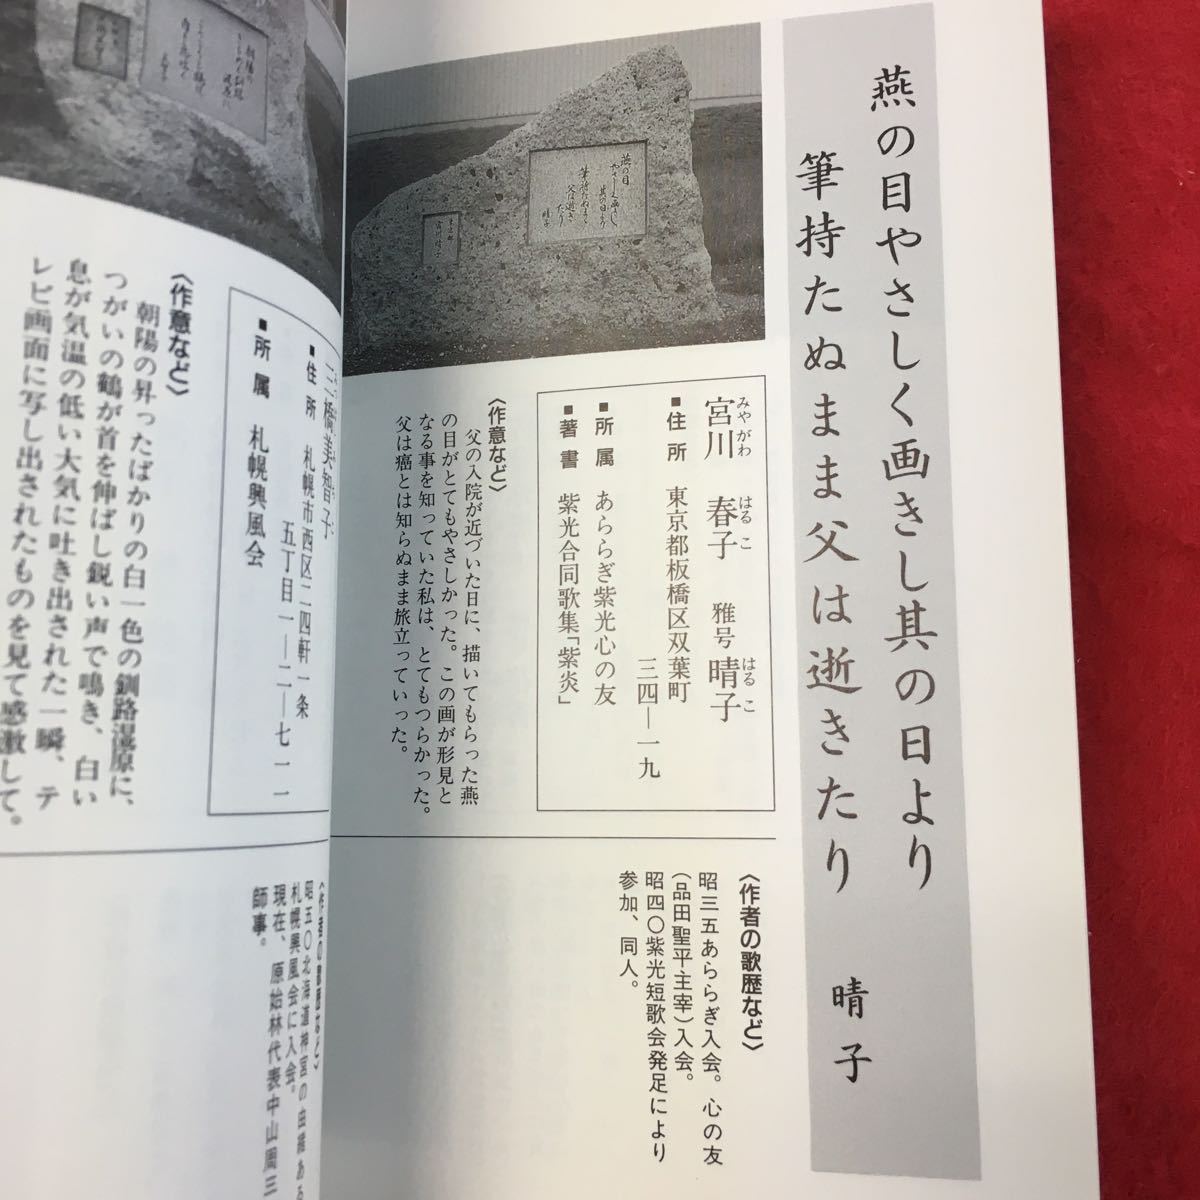 燕の目やさしく画きし其の日より
筆持たぬまま父は逝きたり 晴子
燕の目
やさしく画きし
其の日より
筆持たぬまま
父は逝き
たり
晴子
宮川 春子 雅号 晴子
みやがわ はるこ はるこ
■住所 東京都板橋区双葉町
三四—一九
■所属 あららぎ紫光心の友
■著書 紫光合同歌集「紫炎」
〈作意など〉
父の入院が近づいた日に、描いてもらった燕
の目がとてもやさしかった。この画が形見と
なる事を知っていた私は、とてもつらかった。
父は癌とは知らぬまま旅立っていった。
〈作者の歌歴など〉
昭三五あららぎ入会。心の友
(品田聖平主宰)入会。
昭四〇紫光短歌会発足により
参加、同人。
三橋美智子
■住所 札幌市西区二四軒一条
五丁目一—二—七一一
■所属 札幌興風会
〈作意など〉
朝陽の昇ったばかりの白一色の釧路湿原に、
つがいの鶴が首を伸ばし鋭い声で鳴き、白い
息が気温の低い大気に吐き出された一瞬、テ
レビ画面に写し出されたものを見て感激して。
〈作者の歌歴など〉
昭五〇北海道神宮の由緒ある
札幌興風会に入会。
現在、原始林代表中山周三
師事。